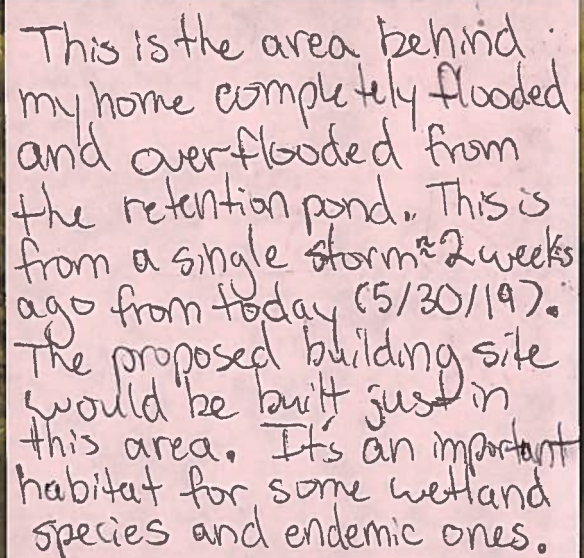 This is the area behind
my home completely flooded
and overflooded from
the retention pond. This is
from a single storm ≈2 weeks
ago from today (5/30/19).
The proposed building site
would be built just in
this area. It's an important
habitat for some wetland
species and endemic ones.